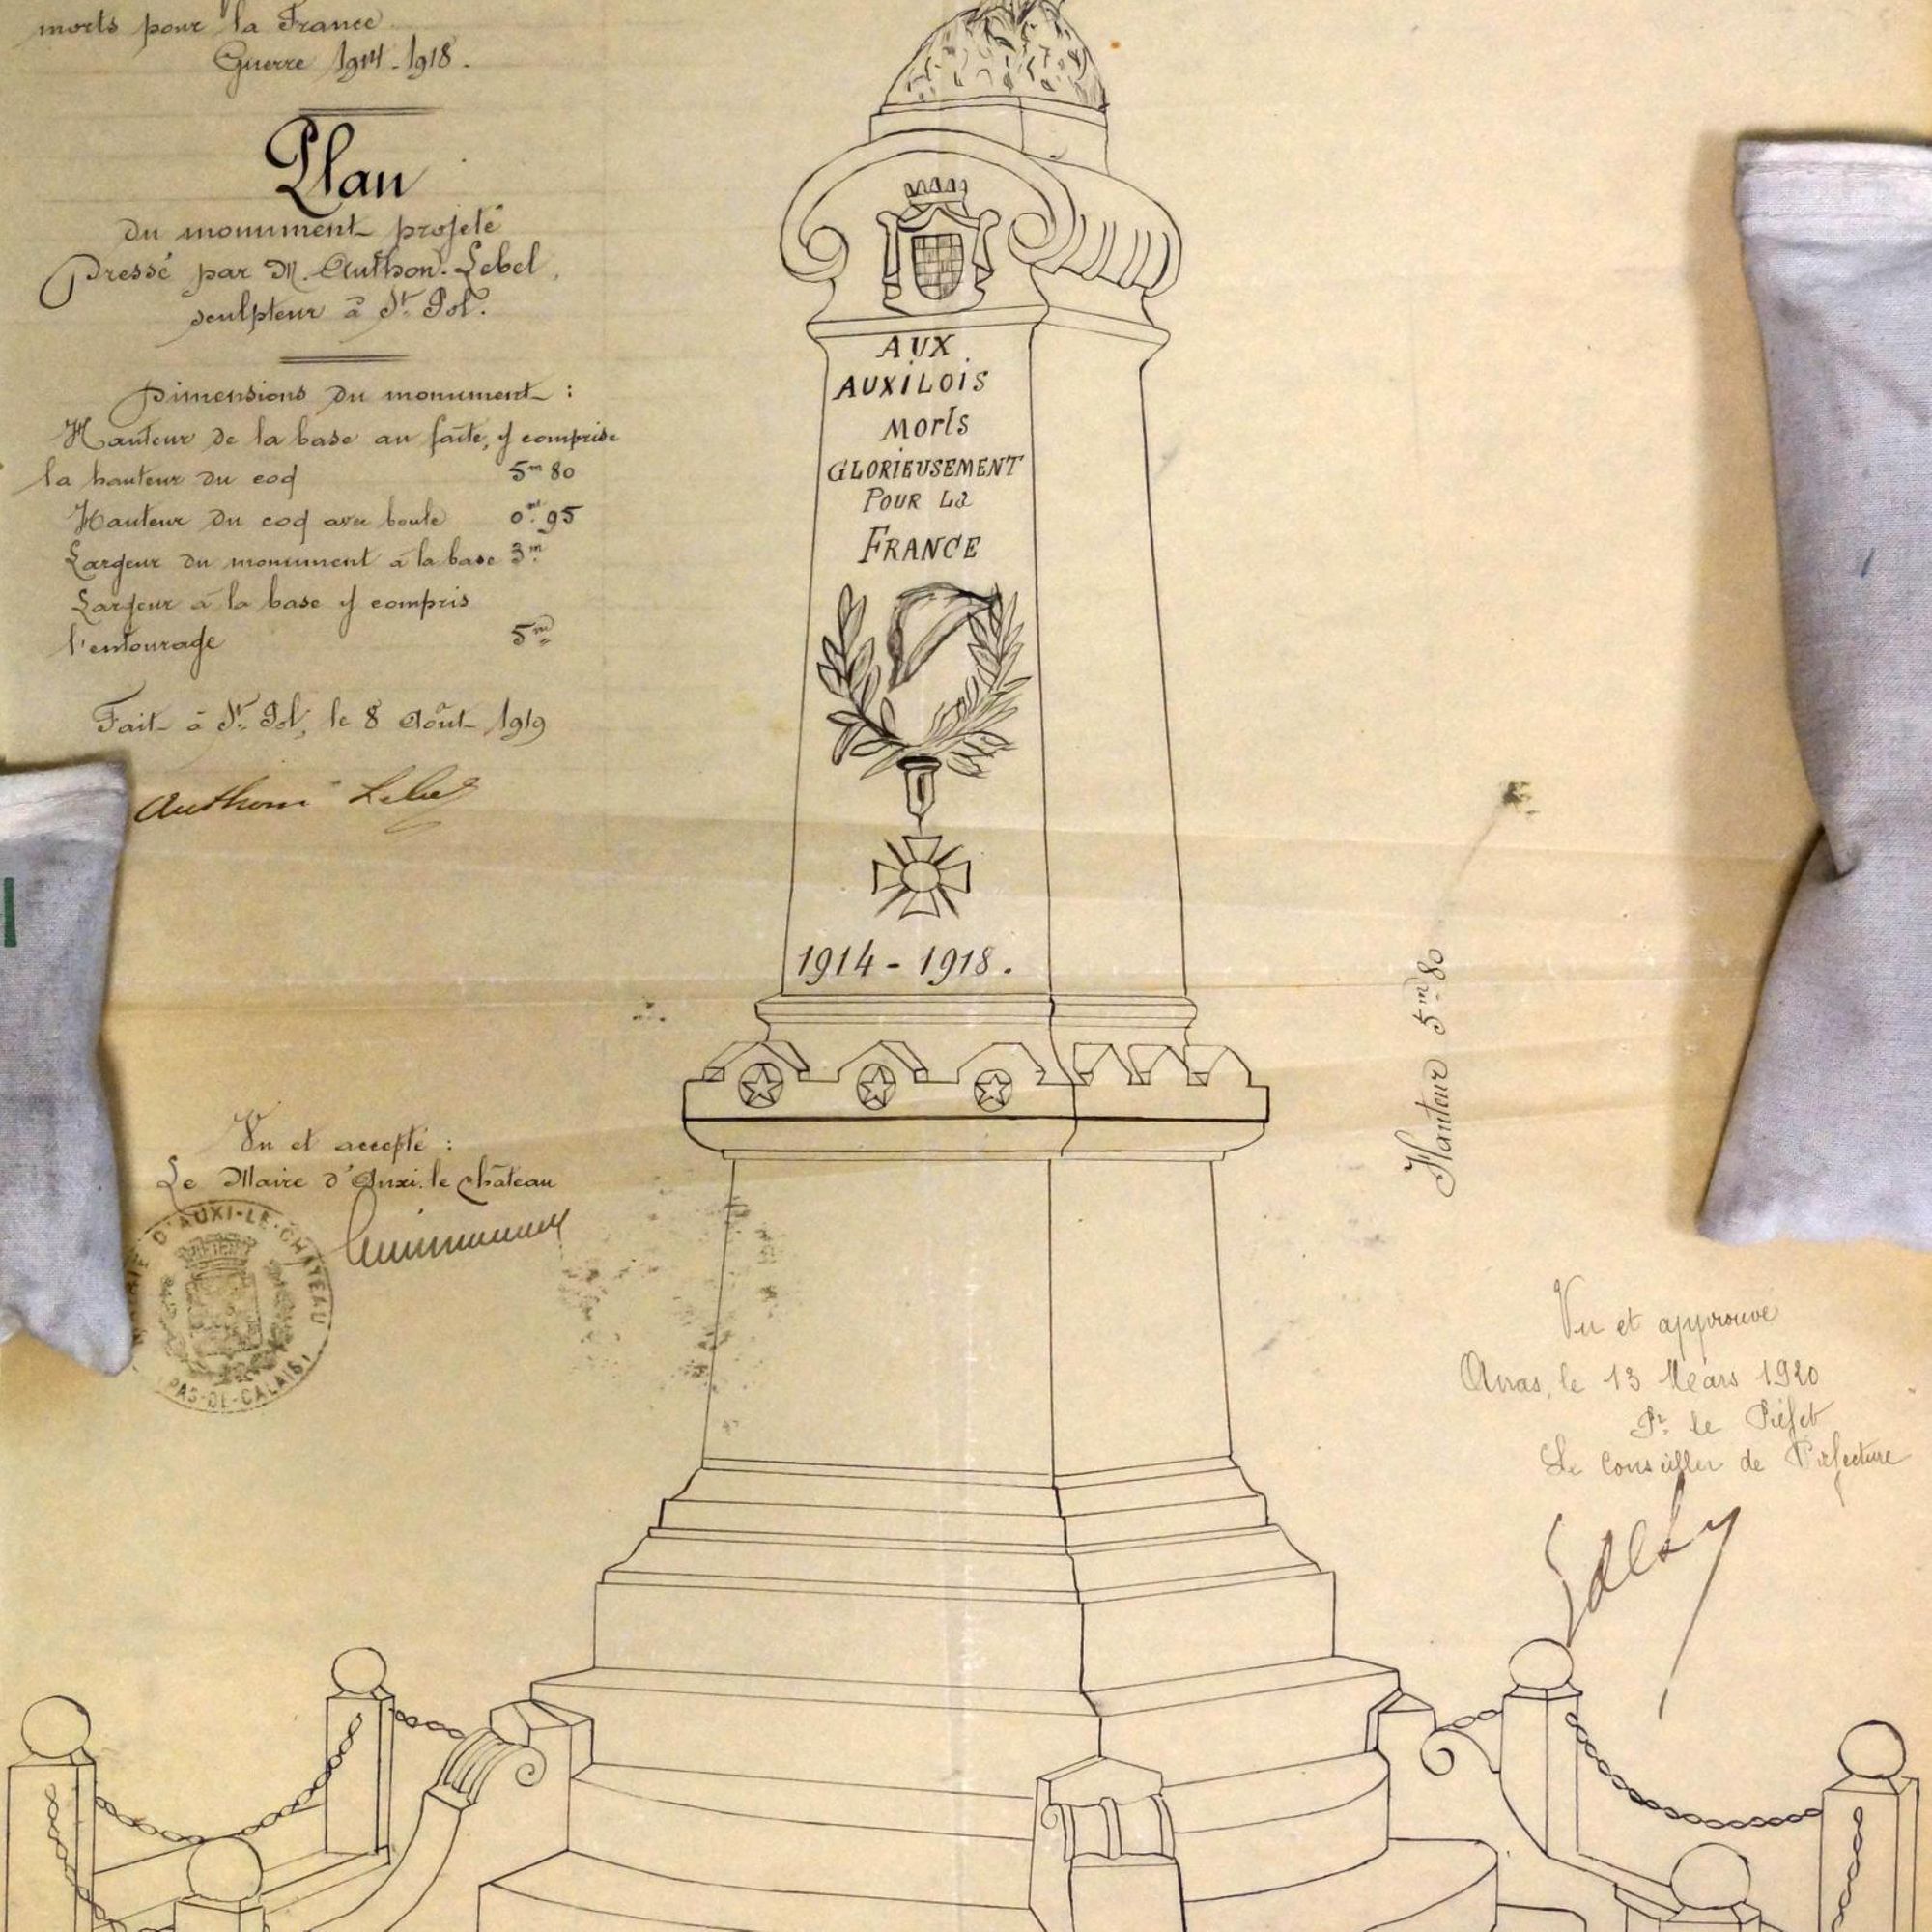 morts pour la France
Guerre 1914-1918.
Plan
du monument projeté
Dressé par M. Anthon. Lebel,
sculpteur à St. Pol.
Dimensions du monument :
Hauteur de la base au faîte, y comprise
la hauteur du coq 5m 80
Hauteur du coq avec boule 0m. 95
Largeur du monument à la base 3m
Largeur à la base y compris
l'entourage 5m
Fait à St. Pol, le 8 Août 1919
Anthoni Lebel
AUX
AUXILOIS
Morts
GLORIEUSEMENT
POUR La
FRANCE
1914 - 1918.
Hauteur 5m 80
Vu et accepté :
Le Maire d'Auxi-le-Château
MAIRIE D'AUXI-LE-CHATEAU
PAS-DE-CALAIS
Vu et approuvé
Arras, le 13 Mars 1920
Pr le Préfet
Le Conseiller de Préfecture